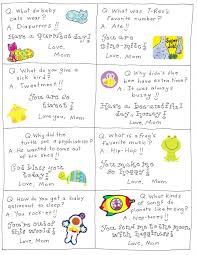 Q. What do baby
cats wear?
A. Diapurrrrs!!
Have a purrfect day!
Love,
Mom
Q. What was T-Rex's
favorite number?
A. Ate!!
You are
dino-mite!
Love, Mom
Q. What do you
give a sick bird?
A. Tweetment!!
You are
so tweet!
Love, Mom
Q. Why didn't the
bee
Have a bee-autiful
day, honey!
Love, Mom
Q. Why did the
turtle see a
A. He wanted to come out
of his shell!!
Love, Mom
Q. What is a frog's
favorite music?
A. Hip-Hop!!
You make me
so hoppy!
Love, Mom
Q. How do you get a baby
astronaut to sleep?
A. You rock-et!!
You're out of
this World!
Love, Mom
Q. What kinds
of songs do
planets like to sing?
A. Nep-tunes!!
you to the moon
with
Love, Mom